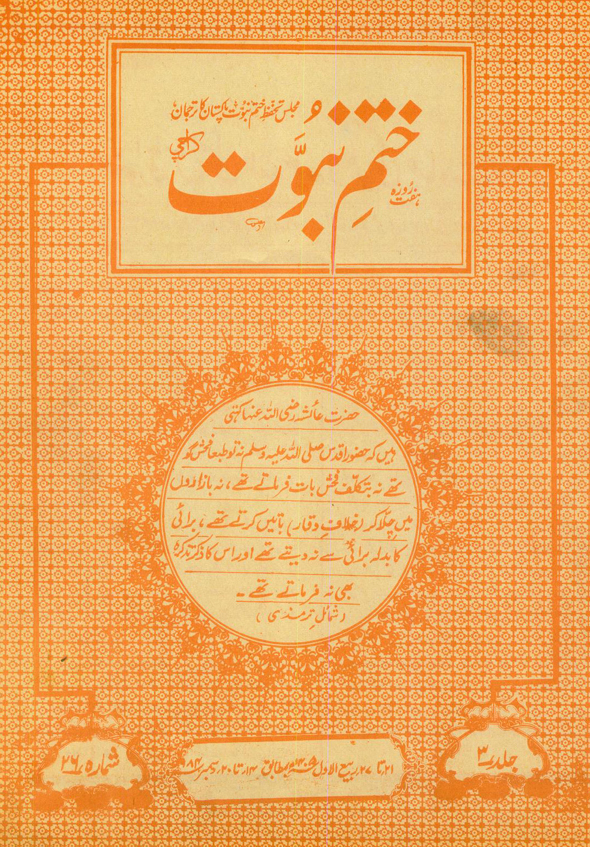 مجلس تحفظ ختم نبوت پاکستان کا ترجمان
ہفت روزہ
ختم نبوت
کراچی
حضرت عائشہ رضی اللہ عنہا کہتی
ہیں کہ حضور اقدس صلی اللہ علیہ وسلم نہ تو طبعاً فحش گو
تھے نہ بتکلف فحش بات فرماتے تھے، نہ بازاروں
میں چلّا کر (خلافِ وقار) باتیں کرتے تھے، برائی
کا بدلہ برائی سے نہ دیتے تھے اور اس کا ذکر تذکرہ
بھی نہ فرماتے تھے ۔
(شمائل ترمذی)
جلد ۳
۲۱ تا ۲۷ ربیع الاول ۱۴۰۵ھ بمطابق ۱۴ تا ۲۰ دسمبر ۱۹۸۴ء
شمارہ ۲۶